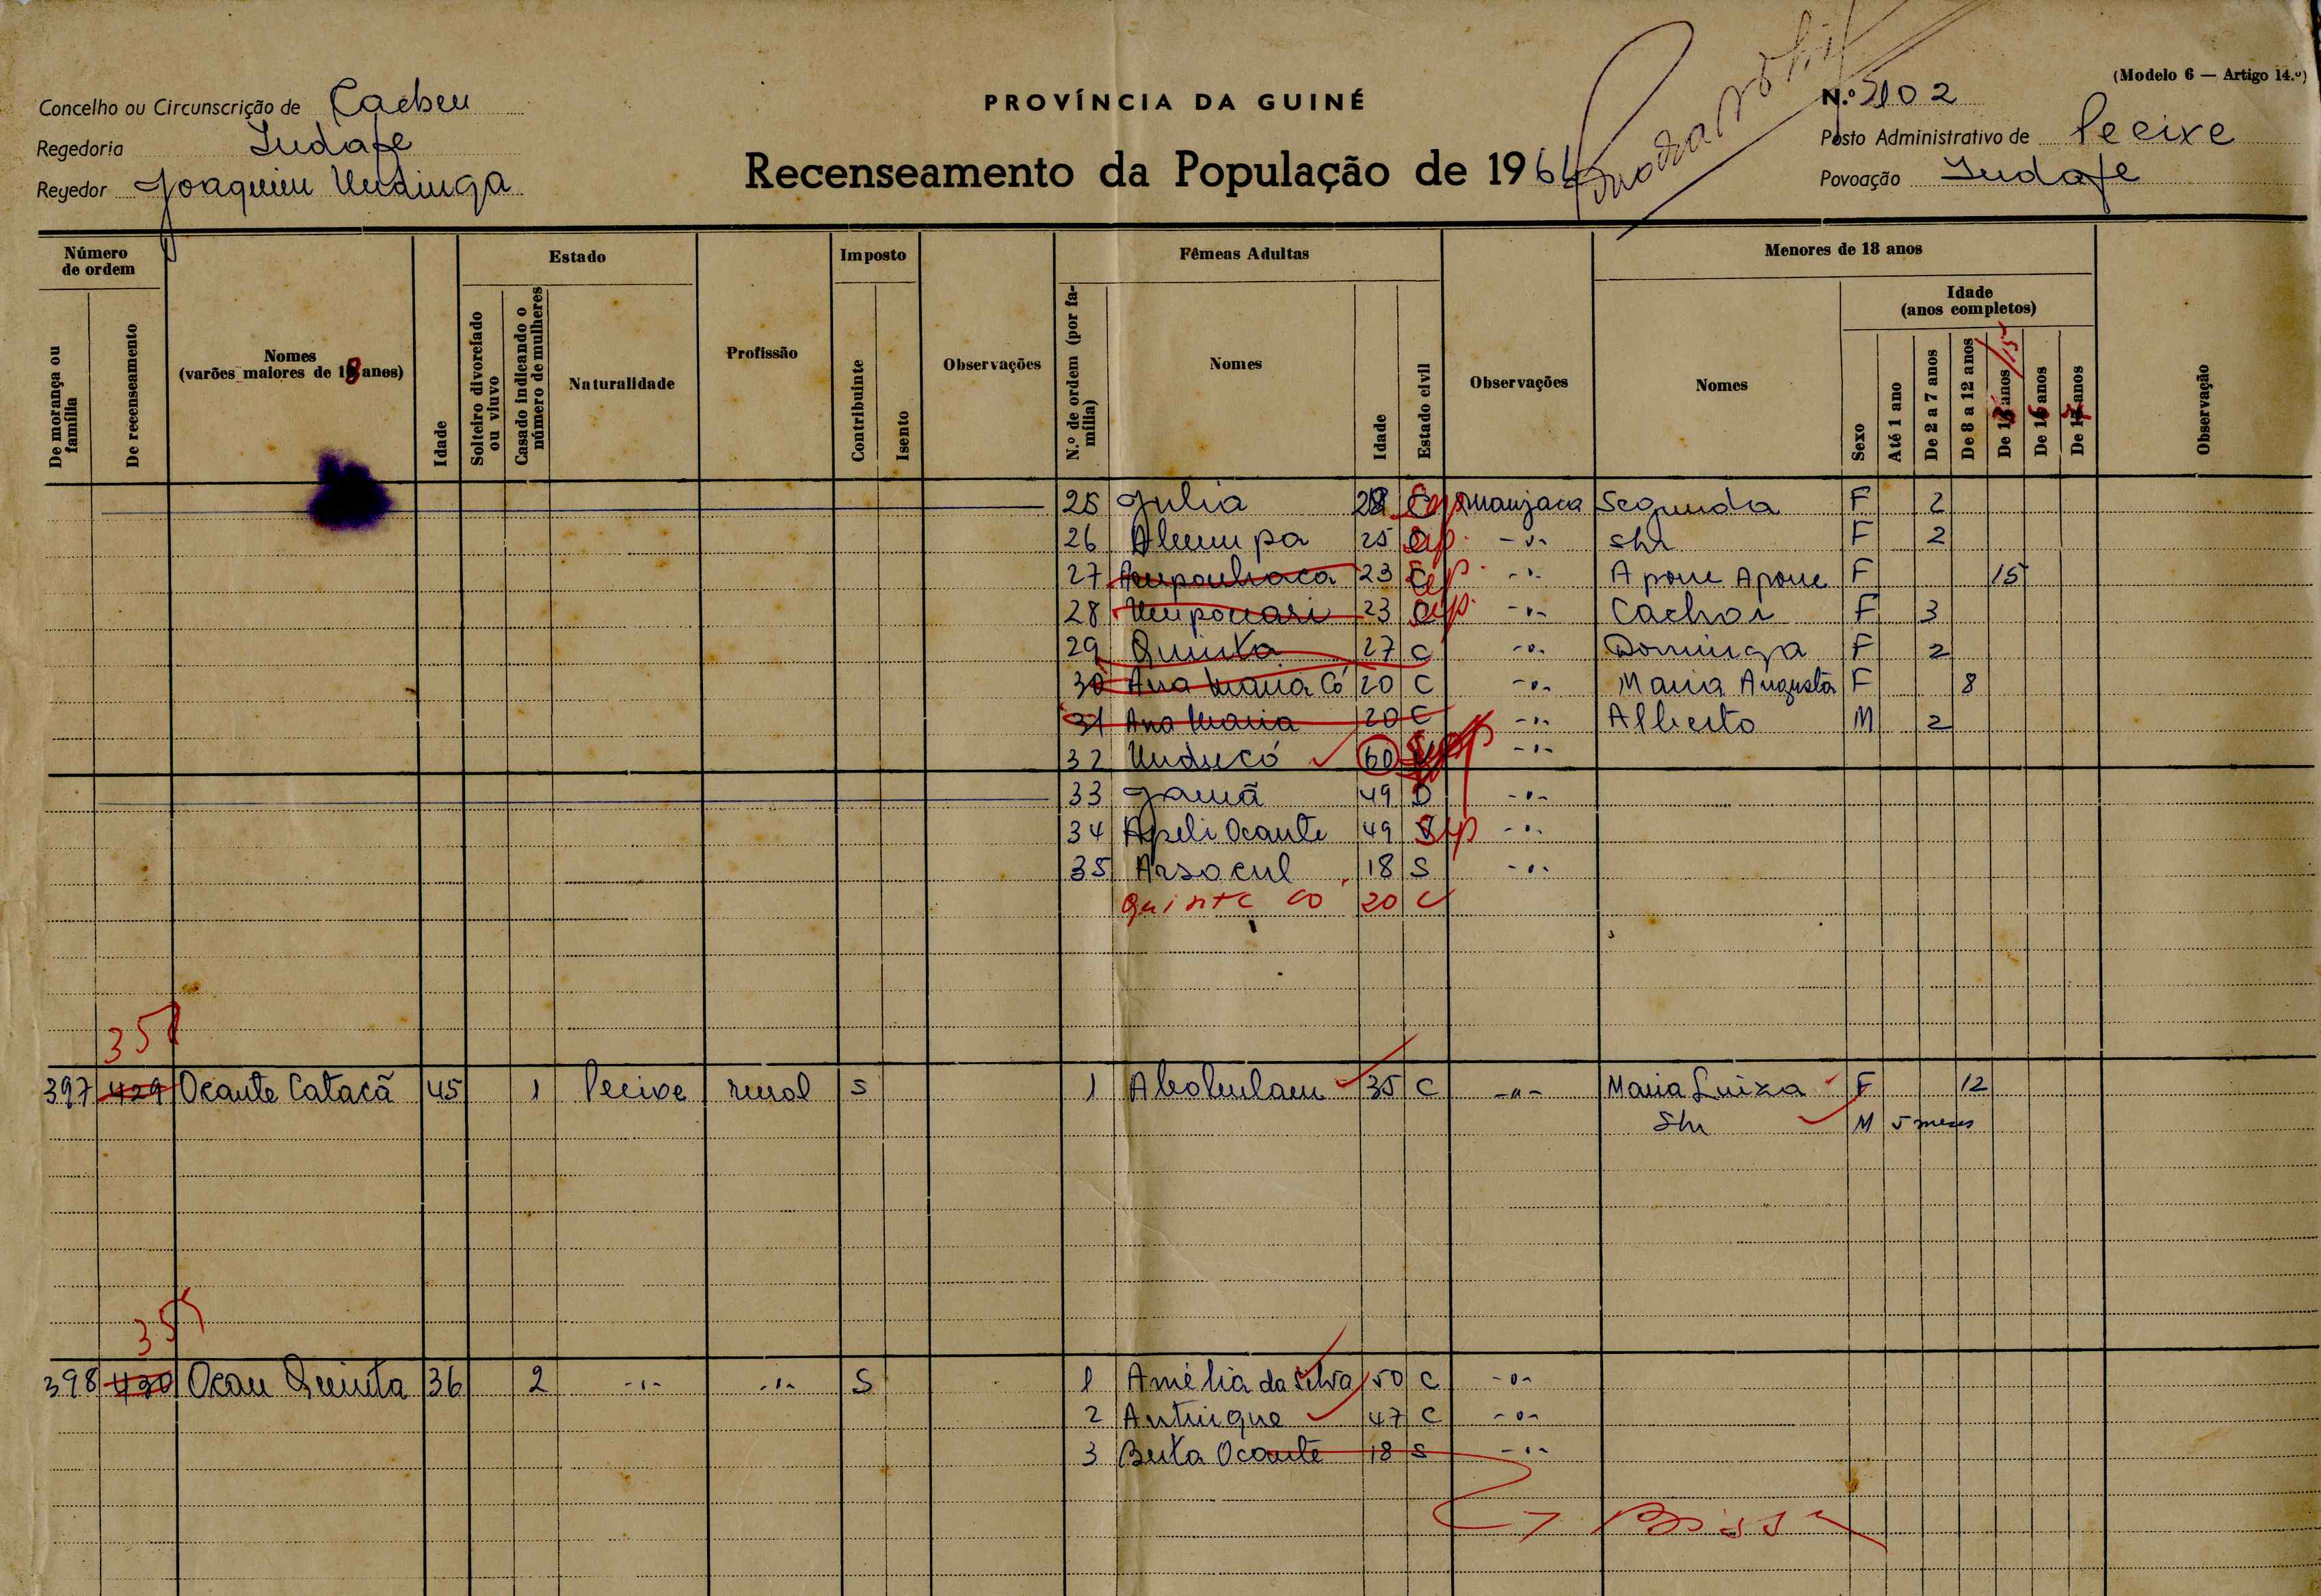 (Modelo 6 — Artigo 14.º)
Concelho ou Circunscrição de Cacheu
PROVÍNCIA DA GUINÉ
N.º 102
Regedoria Indafe
Posto Administrativo de Pecixe
Regedor Joaquim Undinga
Recenseamento da População de 196
Povoação Indafe
Número de ordem
De morança ou família
De recenseamento
Nomes
(varões maiores de 18 anos)
Idade
Estado
Solteiro divorciado ou viuvo
Casado indicando o número de mulheres
Naturalidade
Profissão
Imposto
Contribuinte
Isento
Observações
Fêmeas Adultas
N.º de ordem (por família)
Nomes
Idade
Estado civil
Observações
Menores de 18 anos
Nomes
Sexo
Idade
(anos completos)
Até 1 ano
De 2 a 7 anos
De 8 a 12 anos
De 13 anos /15
De 16 anos
De 17 anos
Observação
25 Julia manjaca Segunda F 2
26 Alumpa 25 -"- shr F 2
27 23 -"- Apone Apone F 15
28 23 -"- Cachoi F 3
29 Quinta 27 C -"- Dominga F 2
30 Ana Maria Có 20 C -"- Maria Augusta F 8
31 Ana Maria 20 C -"- Alberto M 2
32 Unducó 60 -"-
33 Jamã 49 -"-
34 Apeli Ocante 49 -"-
35 Arsocul 18 S -"-
Quinta Co 20 C
358
397 429 Ocante Catacã 45 1 Pecixe rural S 1 35 C -"- Maria Luiza F 12
Shr M 5 meses
359
398 430 Ocan Quinta 36 2 -"- -"- S 1 Amélia da Silva 50 C -"-
2 Antuique 47 C -"-
3 Beta Ocante 18 S -"-